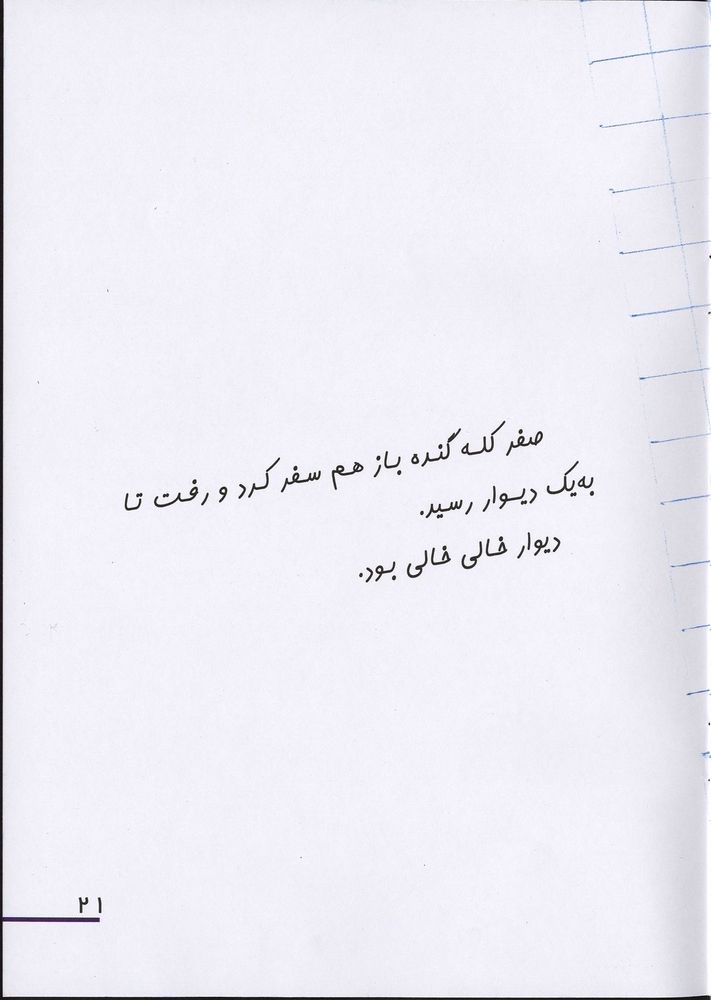 صفر کله گنده باز هم سفر کرد و رفت تا
به یک دیوار رسید.
دیوار خالی خالی بود.
۲۱